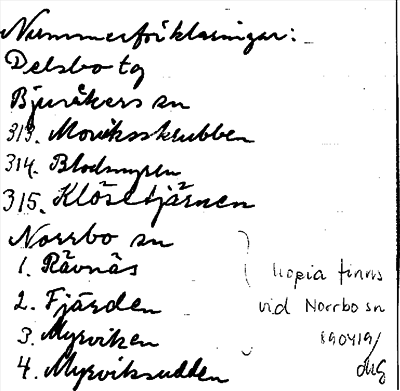 Nummerförklaringar:
Delsbo tg
Bjuråkers sn
313. Moviksskrubben
314. Blodmyren
315. Klösetjärnen
Norrbo sn
1. Rävnäs
2. Fjärden
3. Myrviken
4. Myrviksudden
kopia finns
vid Norrbo sn
890419/